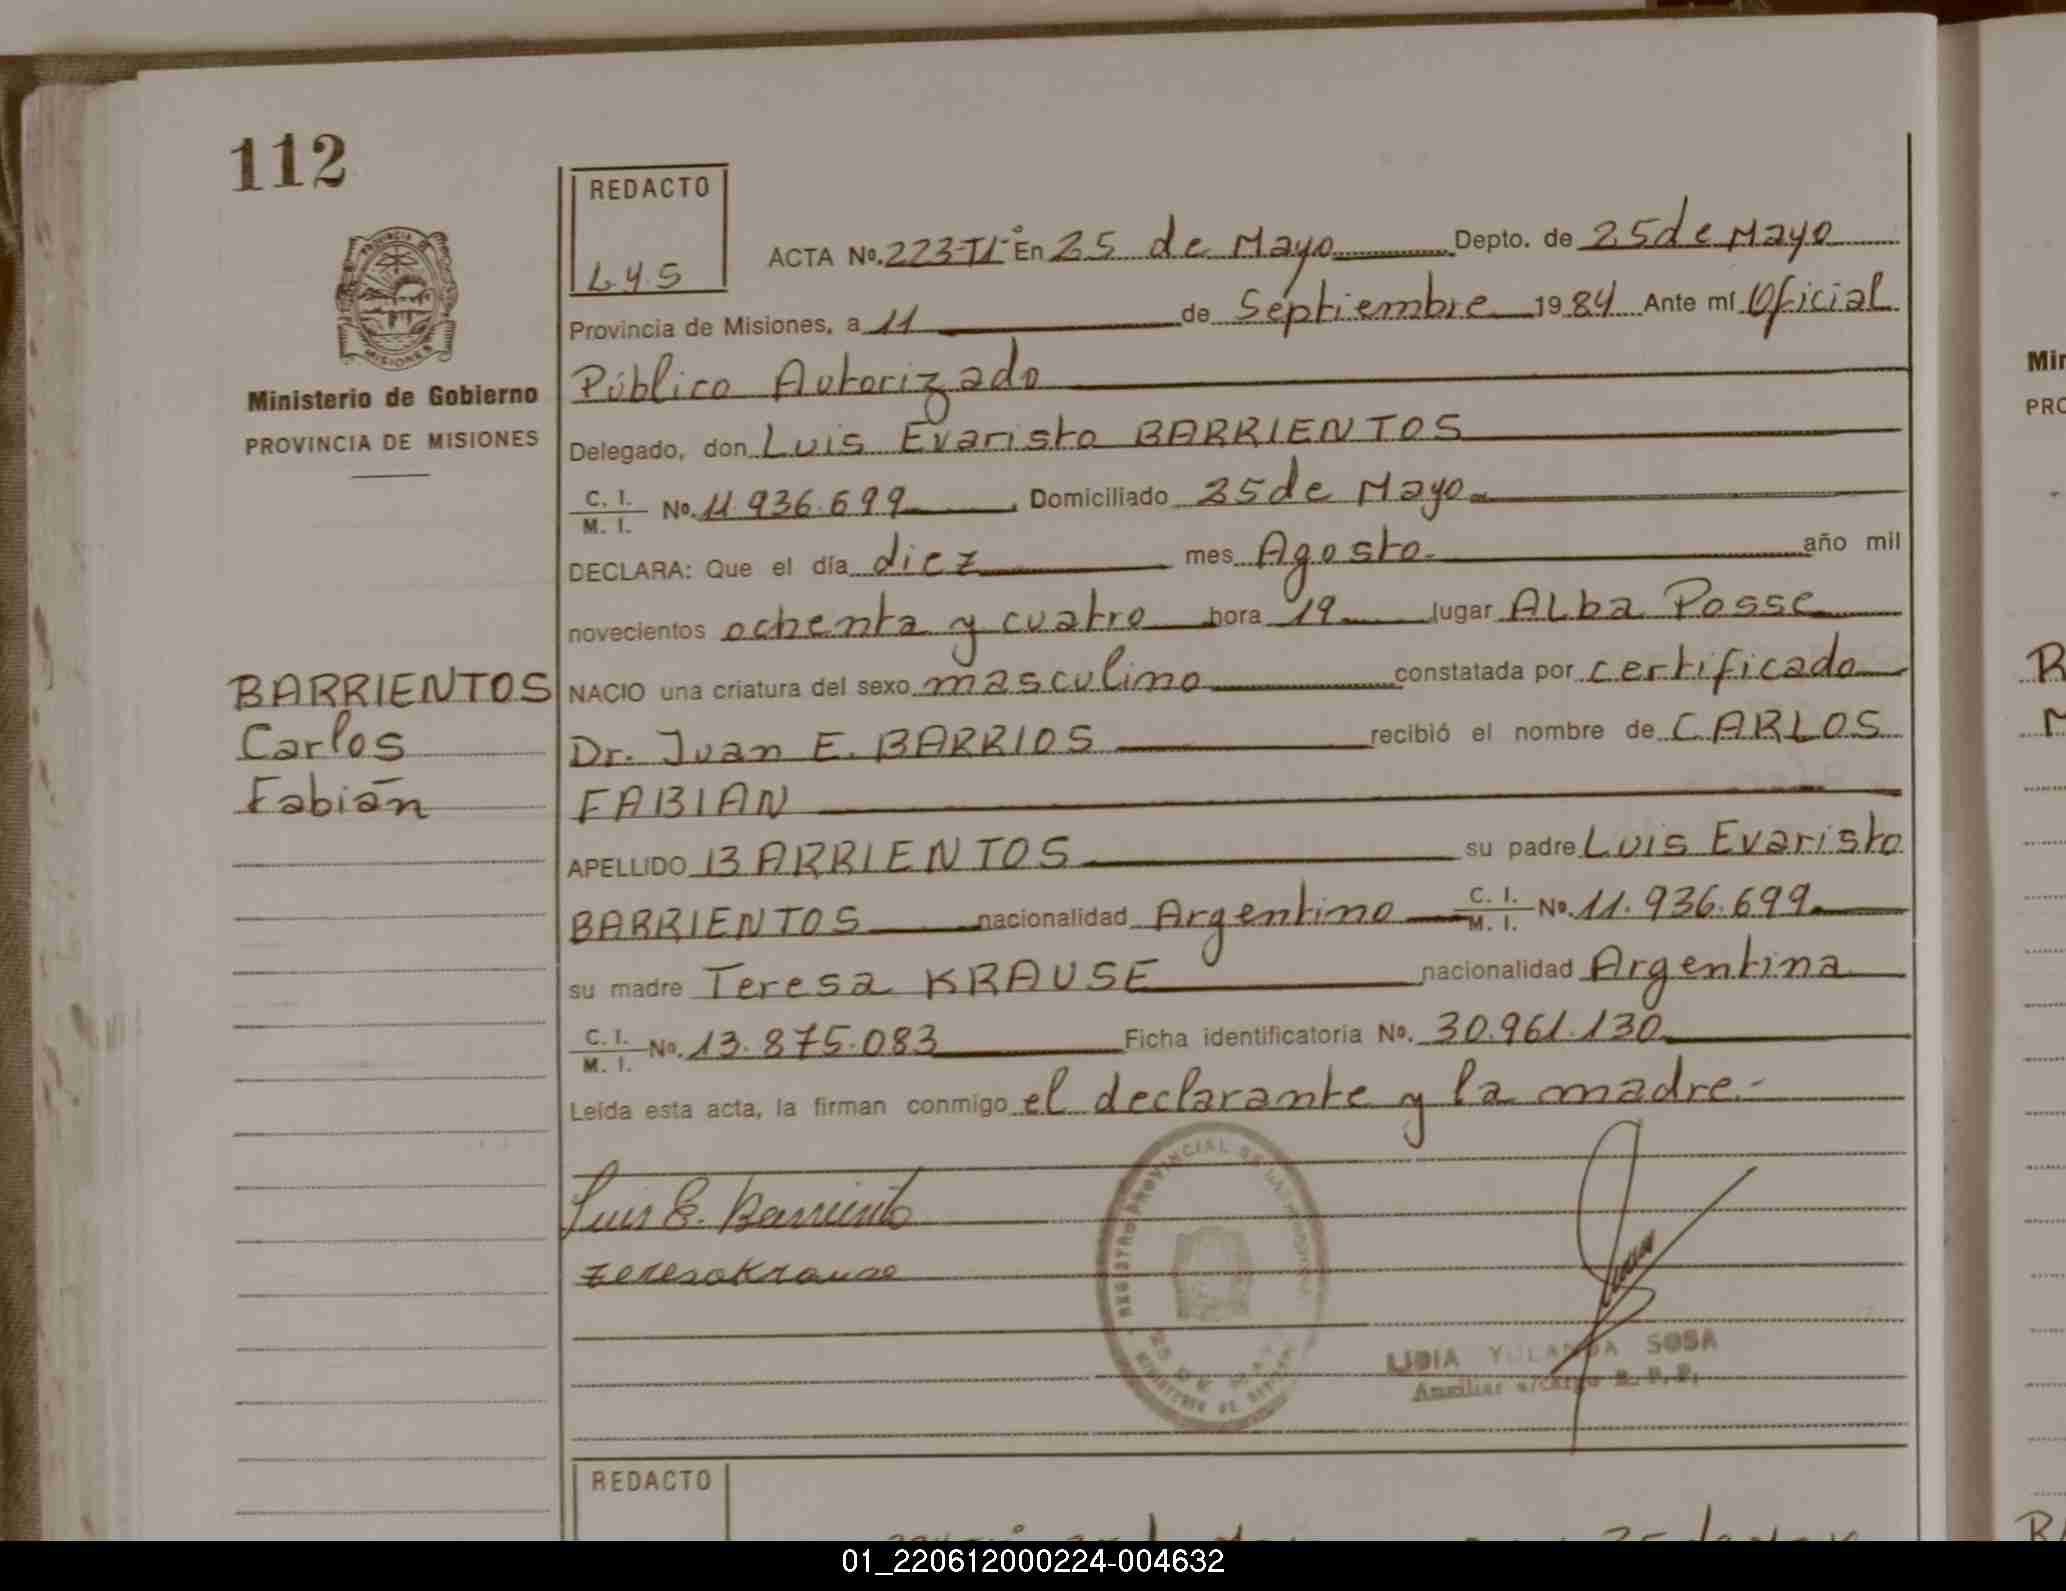 112
REDACTO
L.y.S
ACTA Nº. 223-TIº En 25 de Mayo Depto. de 25 de Mayo
Provincia de Misiones, a 11 de Septiembre 1984 Ante mí Oficial
Público Autorizado
Ministerio de Gobierno
PROVINCIA DE MISIONES
Delegado, don Luis Evaristo BARRIENTOS
C. I. / M. I. Nº. 11.936.699 Domiciliado 25 de Mayo
DECLARA: Que el día diez mes Agosto. año mil
novecientos ochenta y cuatro hora 19 lugar Alba Posse
BARRIENTOS
Carlos
Fabián
NACIO una criatura del sexo masculino constatada por certificado
Dr. Juan E. BARRIOS recibió el nombre de CARLOS
FABIAN
APELLIDO BARRIENTOS su padre Luis Evaristo
BARRIENTOS nacionalidad Argentino C. I. / M. I. Nº. 11.936.699
su madre Teresa KRAUSE nacionalidad Argentina
C. I. / M. I. Nº. 13.875.083 Ficha identificatoria Nº. 30.961.130
Leída esta acta, la firman conmigo el declarante y la madre.-
Luis E. Barriento
teresa Krause
LIDIA YOLANDA SOSA
Auxiliar a/cargo R. P. P.
REDACTO
01_220612000224-004632